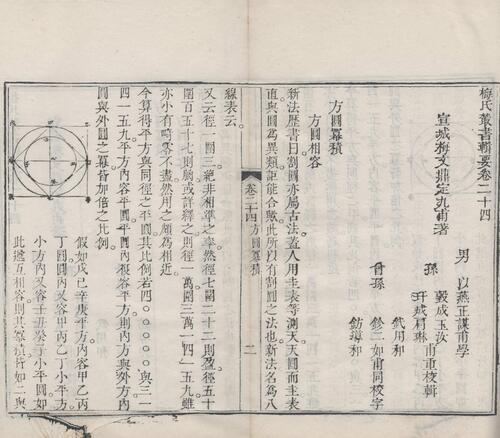 梅氏叢書輯要卷二十四
宣城梅文鼎定九甫著
男 以燕正謀甫學
孫 瑴成玉汝 甫重校輯
玕成肩琳
釴用和
曾孫 鈖二如甫同校字
鈁導和
方圓冪積
方圓相容
新法歷書曰割圓亦屬古法蓋人用圭表等測天天圓而圭表
直與圓為異類詎能合歟此所以有割圓之法也新法名為八
卷二十四 方圓冪積 二
線表云
又云徑一圍三絶非相準之率然徑七圍二十二則盈徑五十
圍百五十七則朒或詳繹之則徑一萬圍三萬一四一五九雖
亦小有畸零不盡然用之頗為相近
今算得平方與同徑之平圓其比例若四〇〇〇〇〇與三一
四一五九平方內容平圓平圓內復容平方則內方與外方內
圓與外圓之冪皆加倍之比例
假如戊己辛庚平方內容甲乙丙
丁圓圓內又容甲丙乙丁小平方
小方內又容壬丑癸子小平圓如
此遞互相容則其冪積皆如二與